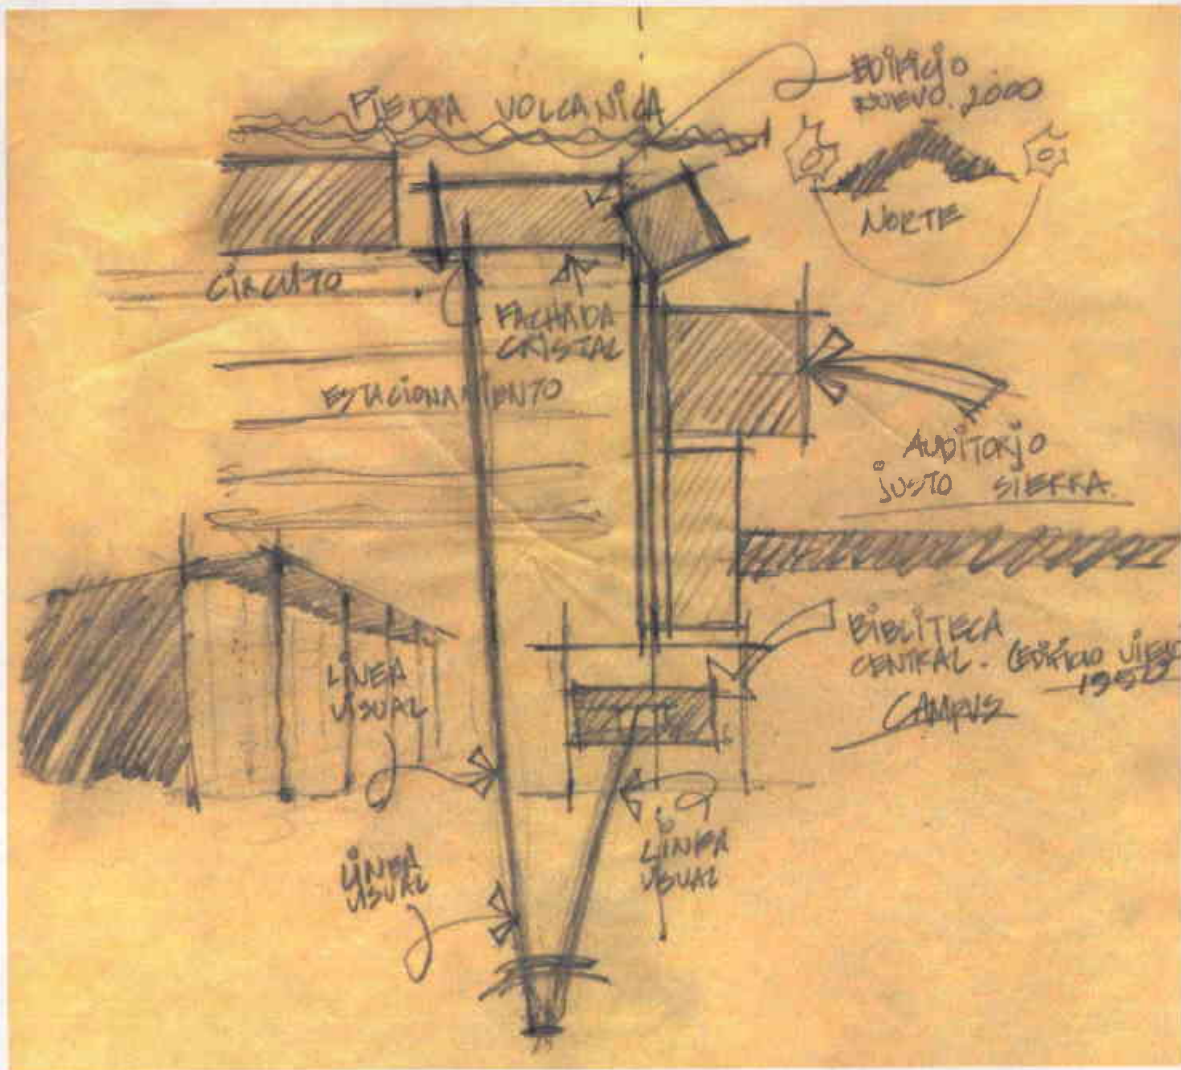 PIEDRA VOLCANICA
EDIFICIO
NUEVO. 2000
NORTE
CIRCUITO
FACHADA
CRISTAL
ESTACIONAMIENTO
AUDITORIO
JUSTO SIERRA.
BIBLITECA
CENTRAL. (EDIFICIO VIEJO
1950
CAMPUS
LÍNEA
VISUAL
LÍNEA
VISUAL
LÍNEA
VISUAL